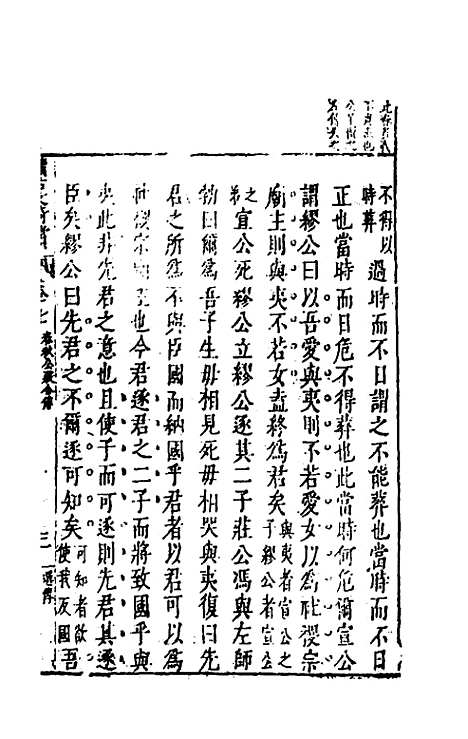 不得以時葬過時而不日謂之不能葬也當時而不日
正也當時而日危不得葬也此當時何危爾宣公
謂繆公曰以吾愛與夷則不若愛女以爲社稷宗
廟主則與夷不若女盍終爲君矣與夷者宣公之子繆公者宣公
之弟宣公死繆公立繆公逐其二子莊公馮與左師
勃曰爾爲吾子生毋相見死毋相哭與夷復曰先
君之所爲不與臣國而納國乎君者以君可以爲
社稷宗廟主也今君逐君之二子而將致國乎與
夷此非先君之意也且使子而可逐則先君其逐
臣矣繆公曰先君之不爾逐可知矣可知者欲使我反國吾
卷七 春秋公羊全傳